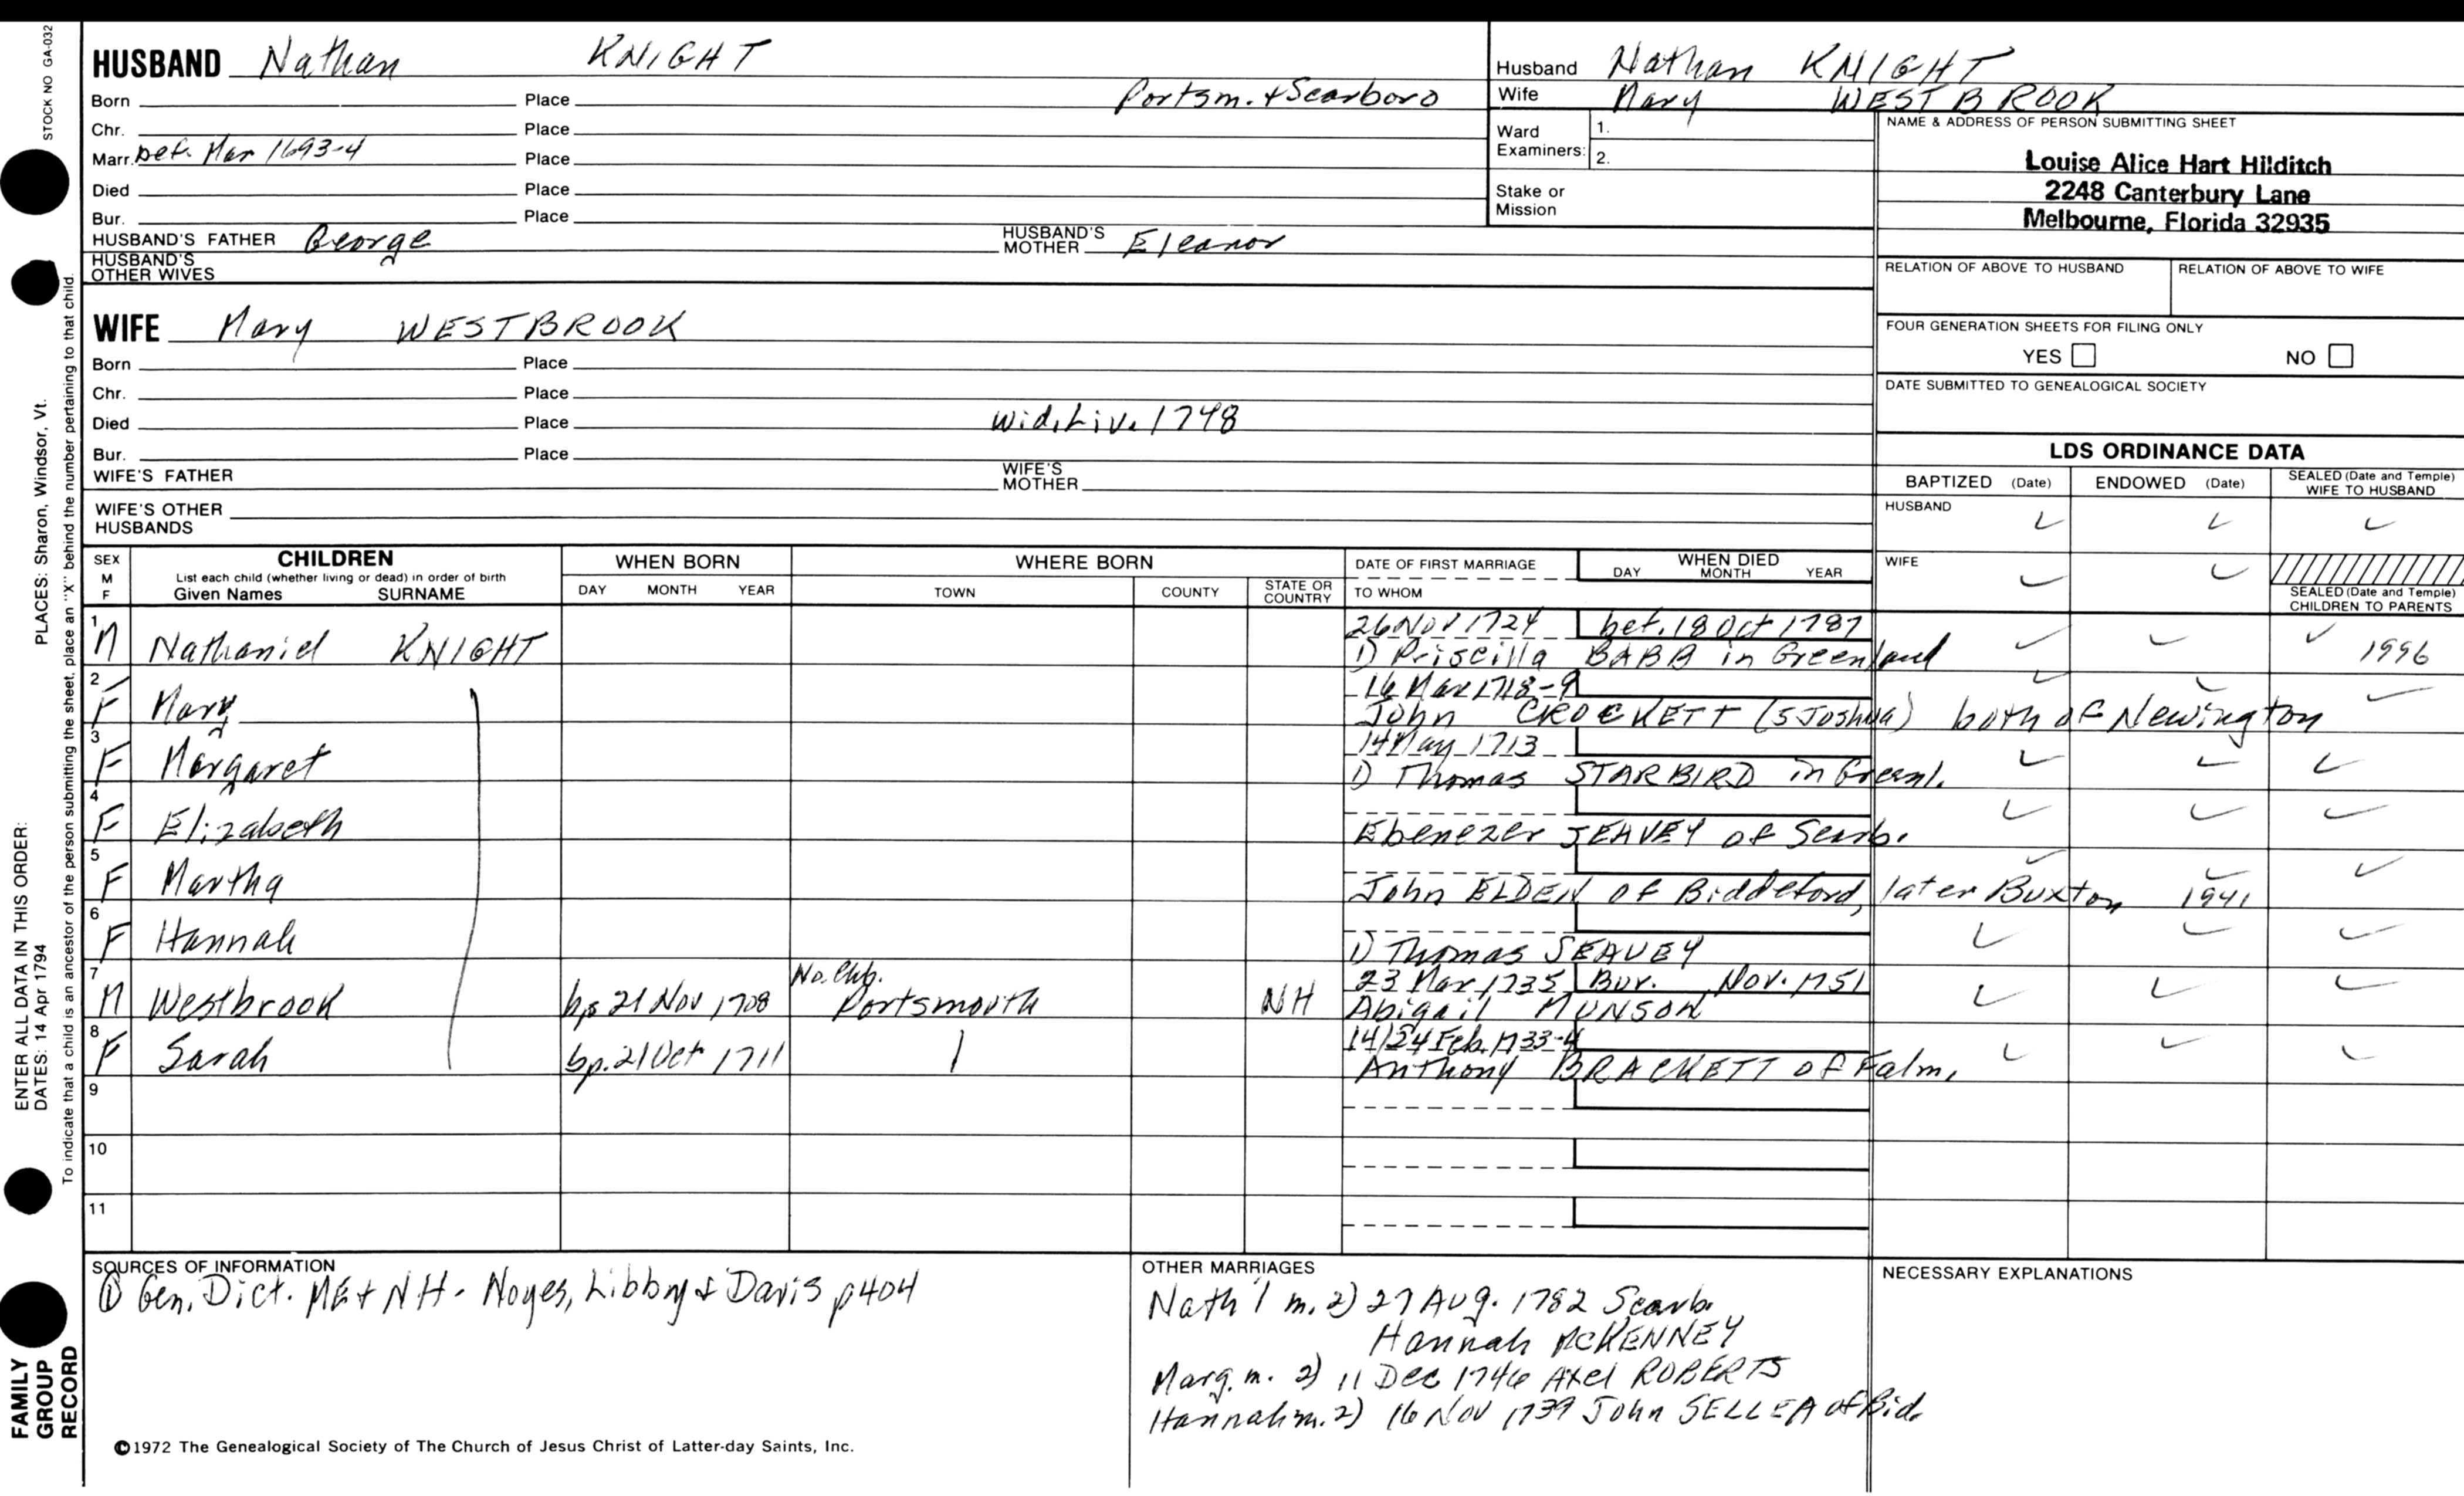 STOCK NO GA-032
HUSBAND Nathan KNIGHT
Born Place Portsm. + Scarboro
Chr. Place
Marr. bef. Mar 1693-4 Place
Died Place
Bur. Place
HUSBAND'S FATHER George HUSBAND'S MOTHER Eleanor
HUSBAND'S OTHER WIVES
Husband Nathan KNIGHT
Wife Mary WESTBROOK
Ward Examiners: 1.
2.
Stake or Mission
NAME & ADDRESS OF PERSON SUBMITTING SHEET
Louise Alice Hart Hilditch
2248 Canterbury Lane
Melbourne, Florida 32935
RELATION OF ABOVE TO HUSBAND RELATION OF ABOVE TO WIFE
FOUR GENERATION SHEETS FOR FILING ONLY
YES NO
DATE SUBMITTED TO GENEALOGICAL SOCIETY
WIFE Mary WESTBROOK
Born Place
Chr. Place
Died Place Wid. Liv. 1748
Bur. Place
WIFE'S FATHER WIFE'S MOTHER
WIFE'S OTHER HUSBANDS
LDS ORDINANCE DATA
BAPTIZED (Date) ENDOWED (Date) SEALED (Date and Temple) WIFE TO HUSBAND
HUSBAND ✓ ✓ ✓
WIFE ✓ ✓
SEALED (Date and Temple) CHILDREN TO PARENTS
SEX M F
CHILDREN
List each child (whether living or dead) in order of birth
Given Names SURNAME
WHEN BORN
DAY MONTH YEAR
WHERE BORN
TOWN COUNTY STATE OR COUNTRY
DATE OF FIRST MARRIAGE
TO WHOM
WHEN DIED
DAY MONTH YEAR
1 M Nathaniel KNIGHT 26 Nov 1724 bet. 18 Oct 1787
1) Priscilla BABB in Greenland ✓ ✓ ✓ 1996
2 F Mary 16 Mar 1718-9 ✓ ✓ ✓
John CROCKETT (s Joshua) both of Newington
3 F Margaret 14 May 1713 ✓ ✓ ✓
1) Thomas STARBIRD in Greenl.
4 F Elizabeth ✓ ✓ ✓
Ebenezer SEAVEY of Scarb.
5 F Martha ✓ ✓ ✓
John ELDEN of Biddeford, later Buxton 1941
6 F Hannah ✓ ✓ ✓
1) Thomas SEAVEY
7 M Westbrook bp 21 Nov 1708 No. Chh. Portsmouth NH 23 Mar 1735 Bur. Nov. 1751 ✓ ✓ ✓
Abigail MUNSON
8 F Sarah bp. 21 Oct 1711 14/24 Feb. 1733-4 ✓ ✓ ✓
Anthony BRACKETT of Falm.
9
10
11
SOURCES OF INFORMATION
① Gen. Dict. ME + NH - Noyes, Libby & Davis p404
OTHER MARRIAGES
Nath'l m. 2) 27 Aug. 1782 Scarb.
Hannah McKENNEY
Marg. m. 2) 11 Dec 1746 Axel ROBERTS
Hannah m. 2) 16 Nov 1739 John SELLEA of Bid.
NECESSARY EXPLANATIONS
©1972 The Genealogical Society of The Church of Jesus Christ of Latter-day Saints, Inc.
PLACES: Sharon, Windsor, Vt.
To indicate that a child is an ancestor of the person submitting the sheet, place an "X" behind the number pertaining to that child.
ENTER ALL DATA IN THIS ORDER:
DATES: 14 Apr 1794
FAMILY
GROUP
RECORD